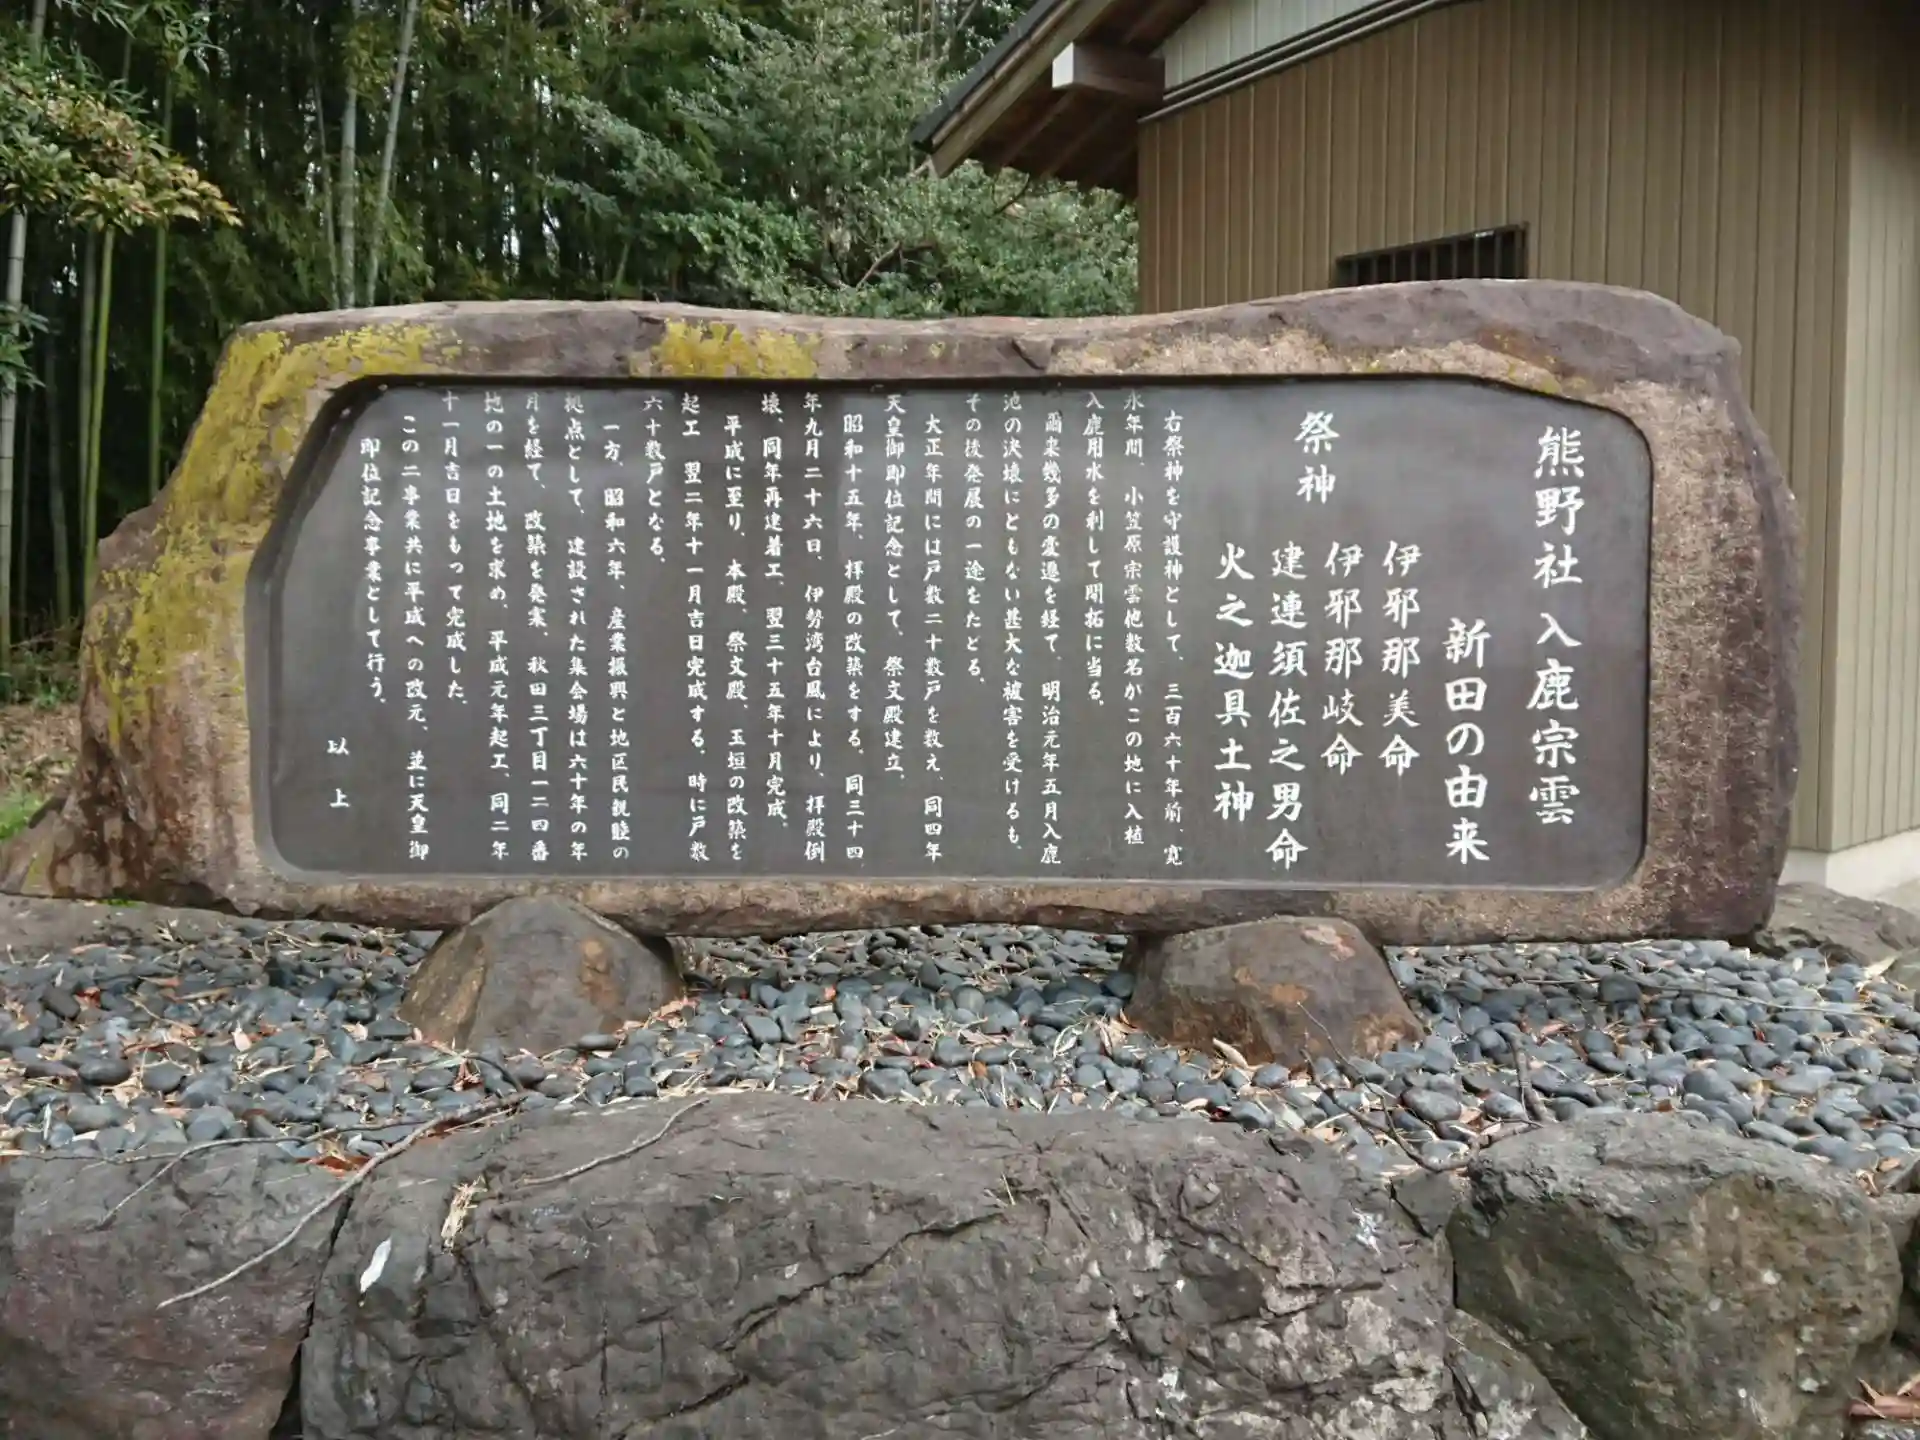 熊野社 入鹿宗雲
新田の由来
祭神
伊邪那美命
伊邪那岐命
建連須佐之男命
火之迦具土神
右祭神を守護神として、三百六十年前、寛
永年間、小笠原宗雲他数名がこの地に入植
入鹿用水を利して開拓に当る。
爾来幾多の変遷を経て、明治元年五月入鹿
池の決壊にともない甚大な被害を受けるも、
その後発展の一途をたどる。
大正年間には戸数二十数戸を数え、同四年
天皇御即位記念として、祭文殿建立。
昭和十五年、拝殿の改築をする。同三十四
年九月二十六日、伊勢湾台風により、拝殿倒
壊、同年再建着工、翌三十五年十月完成。
平成に至り、本殿、祭文殿、玉垣の改築を
起工 翌二年十一月吉日完成する。時に戸数
六十数戸となる。
一方、昭和六年、産業振興と地区民親睦の
拠点として、建設された集会場は六十年の年
月を経て、改築を発案、秋田三丁目一二四番
地の一の土地を求め、平成元年起工、同二年
十一月吉日をもって完成した。
この二事業共に平成への改元、並に天皇御
即位記念事業として行う。
以上